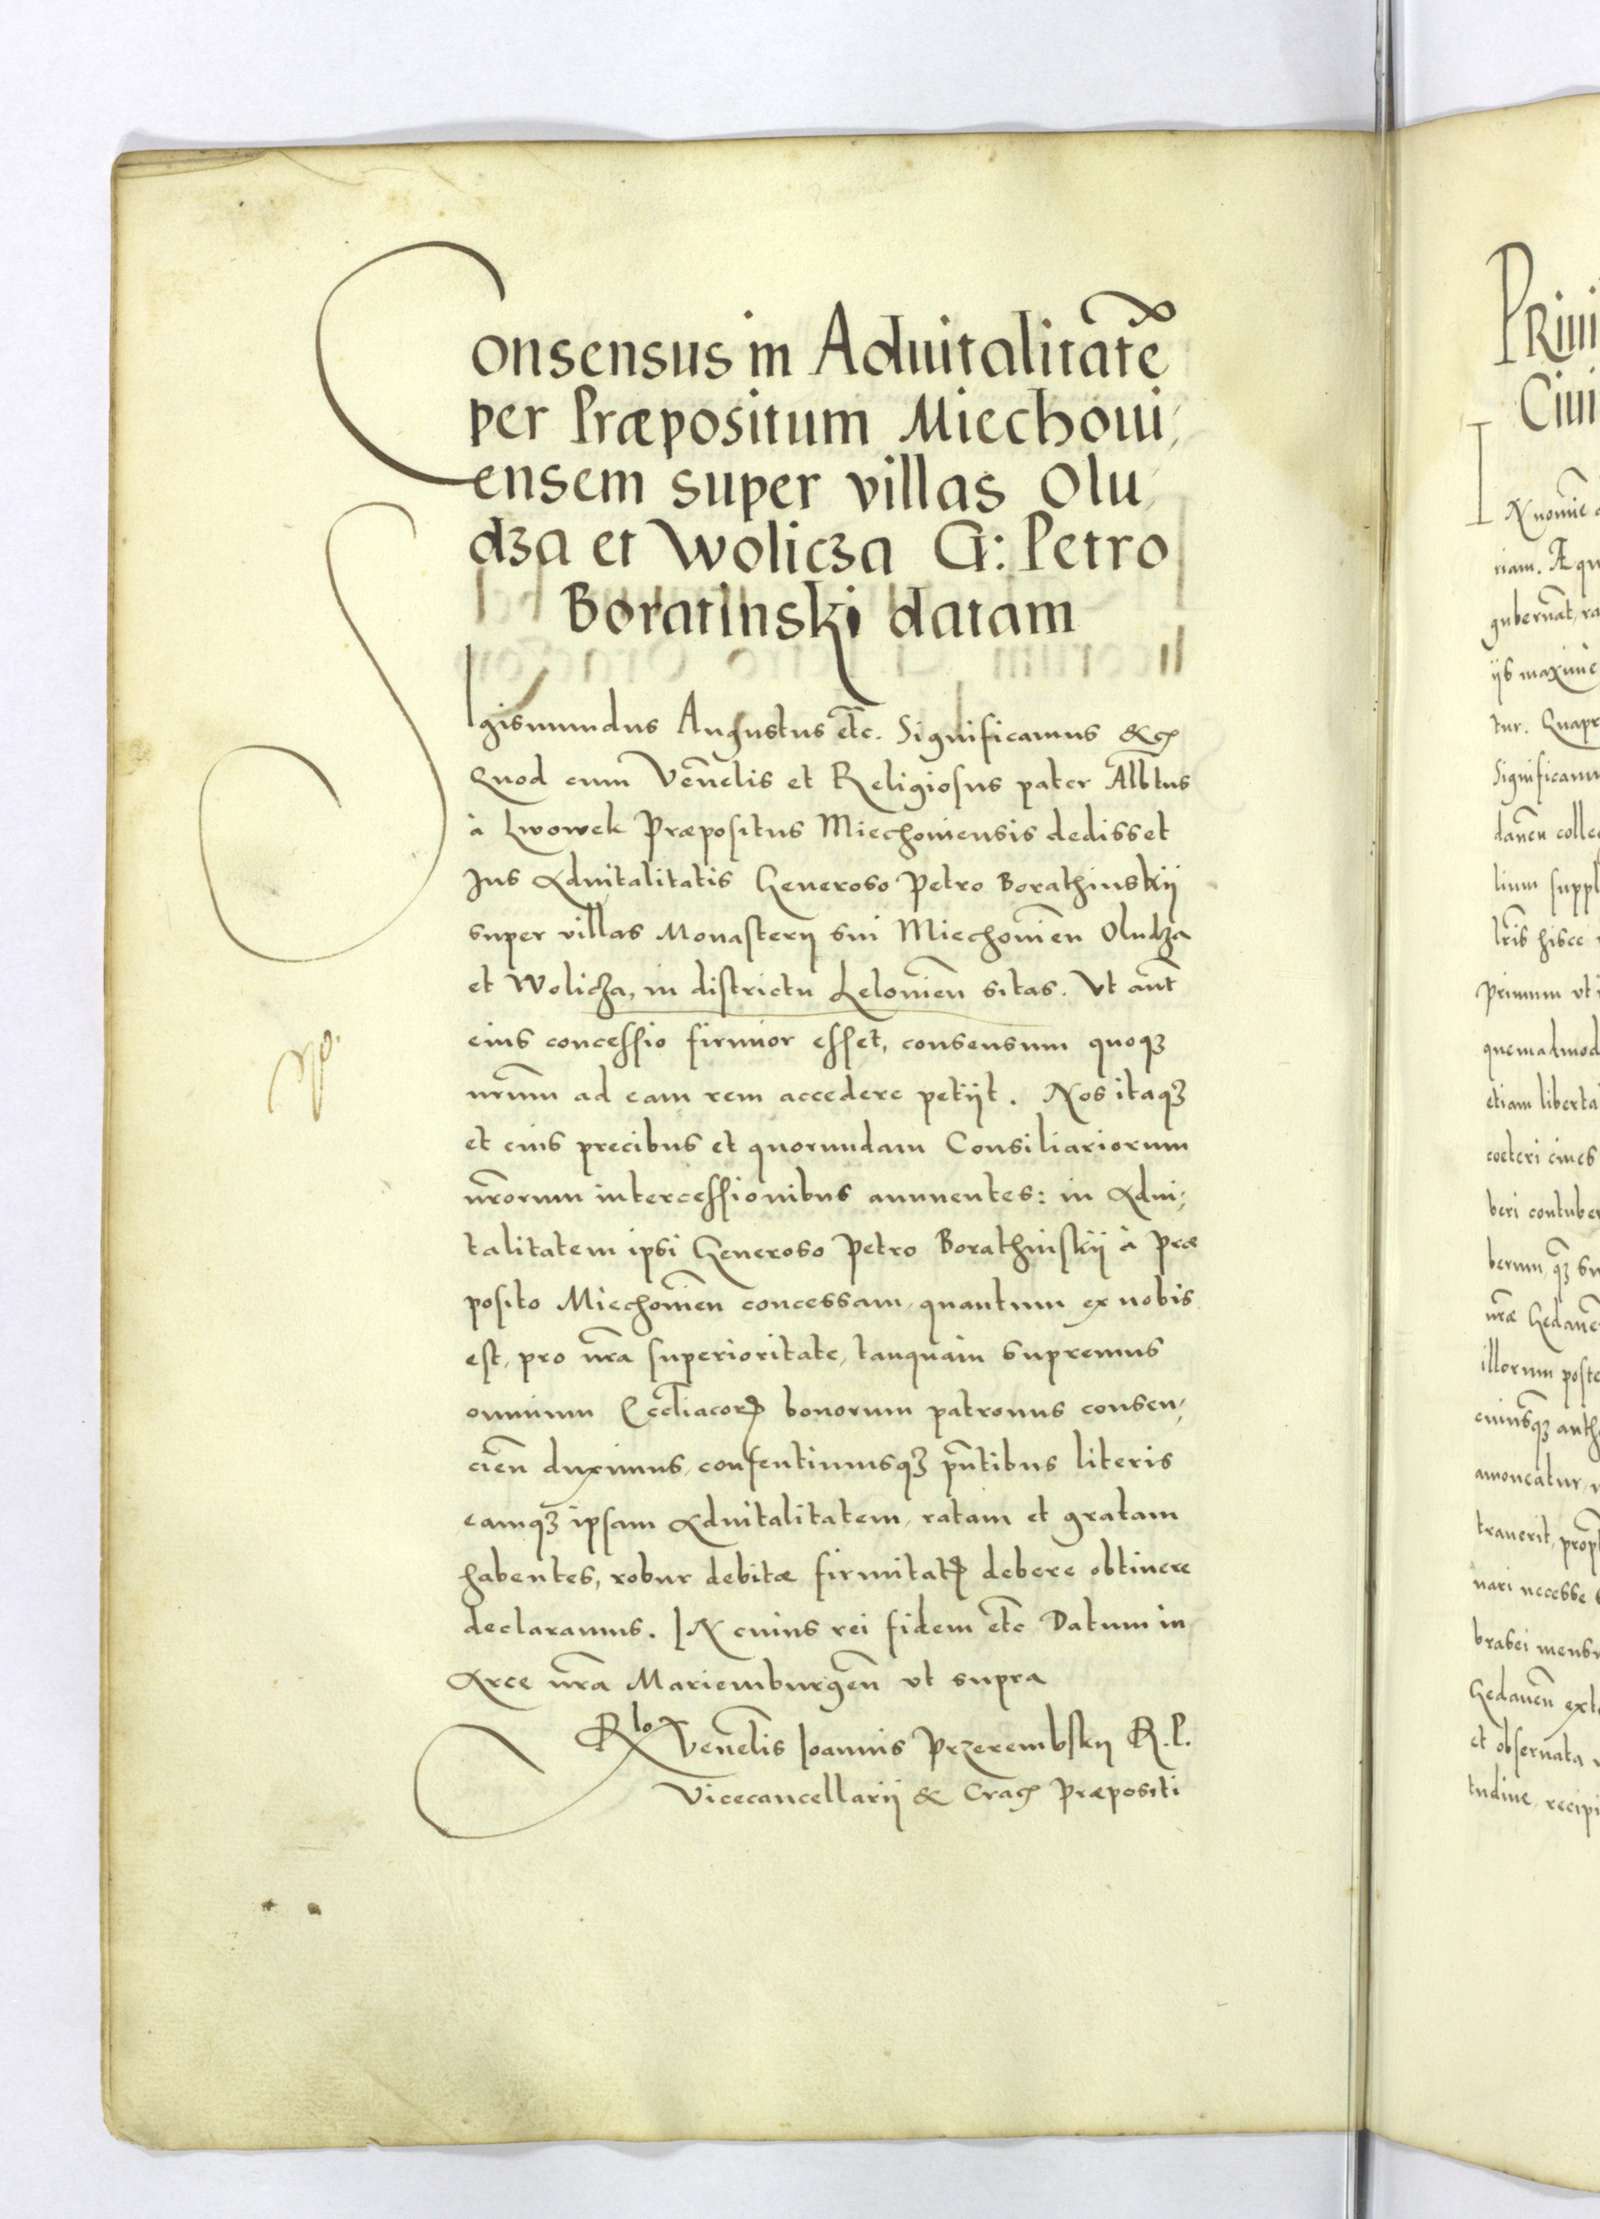 Consensus in Aduitalitatē
per Præpositum Miechoui,
ensem super villas Olu,
dza et Wolicza G: Petro
Boratinski datam
SIgismundus Augustus etc. Significamus &c
Quod cum Venēlis et Religiosus pater Albtus
à Lwowek Præpositus Miechouiensis dedisset
Jus Aduitalitatis Generoso Petro Borathinskij
super villas Monasterij sui Miechouien̄ Oludza
et Wolicza, in districtu Lelouien̄ sitas. Vt aūt
eius concessio firmior esset, consensum quoqȝ
nr̄um ad eam rem accedere petijt. Nos itaqȝ
et eius precibus et quorundam Consiliariorum
nr̄orum intercessionibus annuentes: in Adui,
talitatem ipsi Generoso Petro Borathinskij à Præ
posito Miechouien̄ concessam, quantum ex nobis
est, pro nr̄a superioritate, tanquam supremus
omnium Eccl̄iacorꝝ bonorum patronus consen,
cien̄ duximus, consentimusqȝ pn̄tibus literis
eamqȝ ipsam Aduitalitatem, ratam et gratam
habentes, robur debitæ firmitatꝭ debere obtinere
declaramus. IN cuius rei fidem etc Datum in
Arce nr̄a Mariemburgen̄ vt supra
Rlo Venēlis Joannis Przerembskij R.P.
Vicecancellarij & Crac Præpositi
PRiui
Ciui
IN nomīe
riam. Æqu
gubernāt, ra
ijs maximè
tur. Quapr
Significamu
danen̄ colle
lium suppl
lr̄is hisce
primum vt
quemadmod
etiam liberta
cœteri ciues
beri contuber
berum, qȝ su
nr̄æ Gedanen̄
illorum poste
cuiusqȝ auth
amoueatur,
trauerit, prop
nari necesse
brabei mensu
Gedanen̄ exte
et obseruata
tudine, recipi